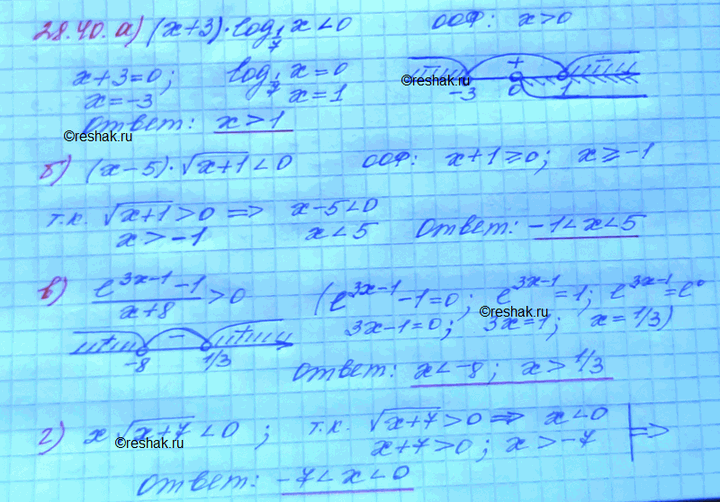 28.40. а) (x+3)·log_{1/7} x < 0   ООФ: x>0
x+3=0;   log_{1/7} x = 0
x=-3   x=1
- + -
©reshak.ru
-3 0 1
Ответ: x>1
©reshak.ru
б) (x-5)·√(x+1) < 0   ООФ: x+1≥0; x≥-1
т.к. √(x+1) > 0 ⇒ x-5<0
x>-1   x<5   Ответ: -1<x<5
в) (e^{3x-1}-1)/(x+8) > 0   (e^{3x-1}-1=0; e^{3x-1}=1; e^{3x-1}=e^0
©reshak.ru
3x-1=0; 3x=1; x=1/3)
+ - +
-8 1/3
Ответ: x<-8; x>1/3
г) x√(x+7) < 0; т.к. √(x+7) > 0 ⇒ x<0
©reshak.ru
x+7>0; x>-7 ⇒
Ответ: -7<x<0